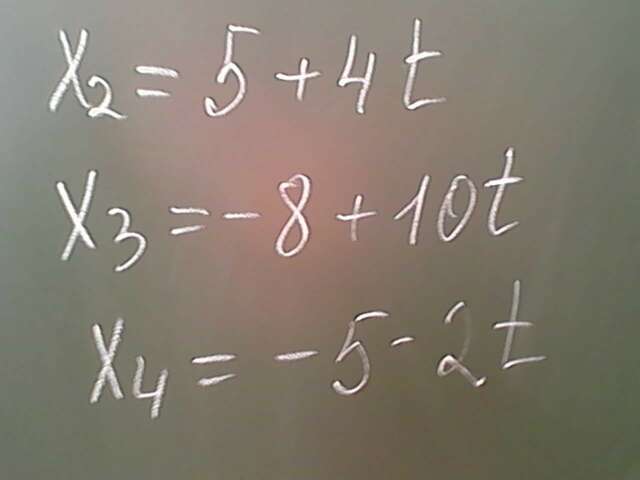 x₂ = 5 + 4t
x₃ = -8 + 10t
x₄ = -5 - 2t